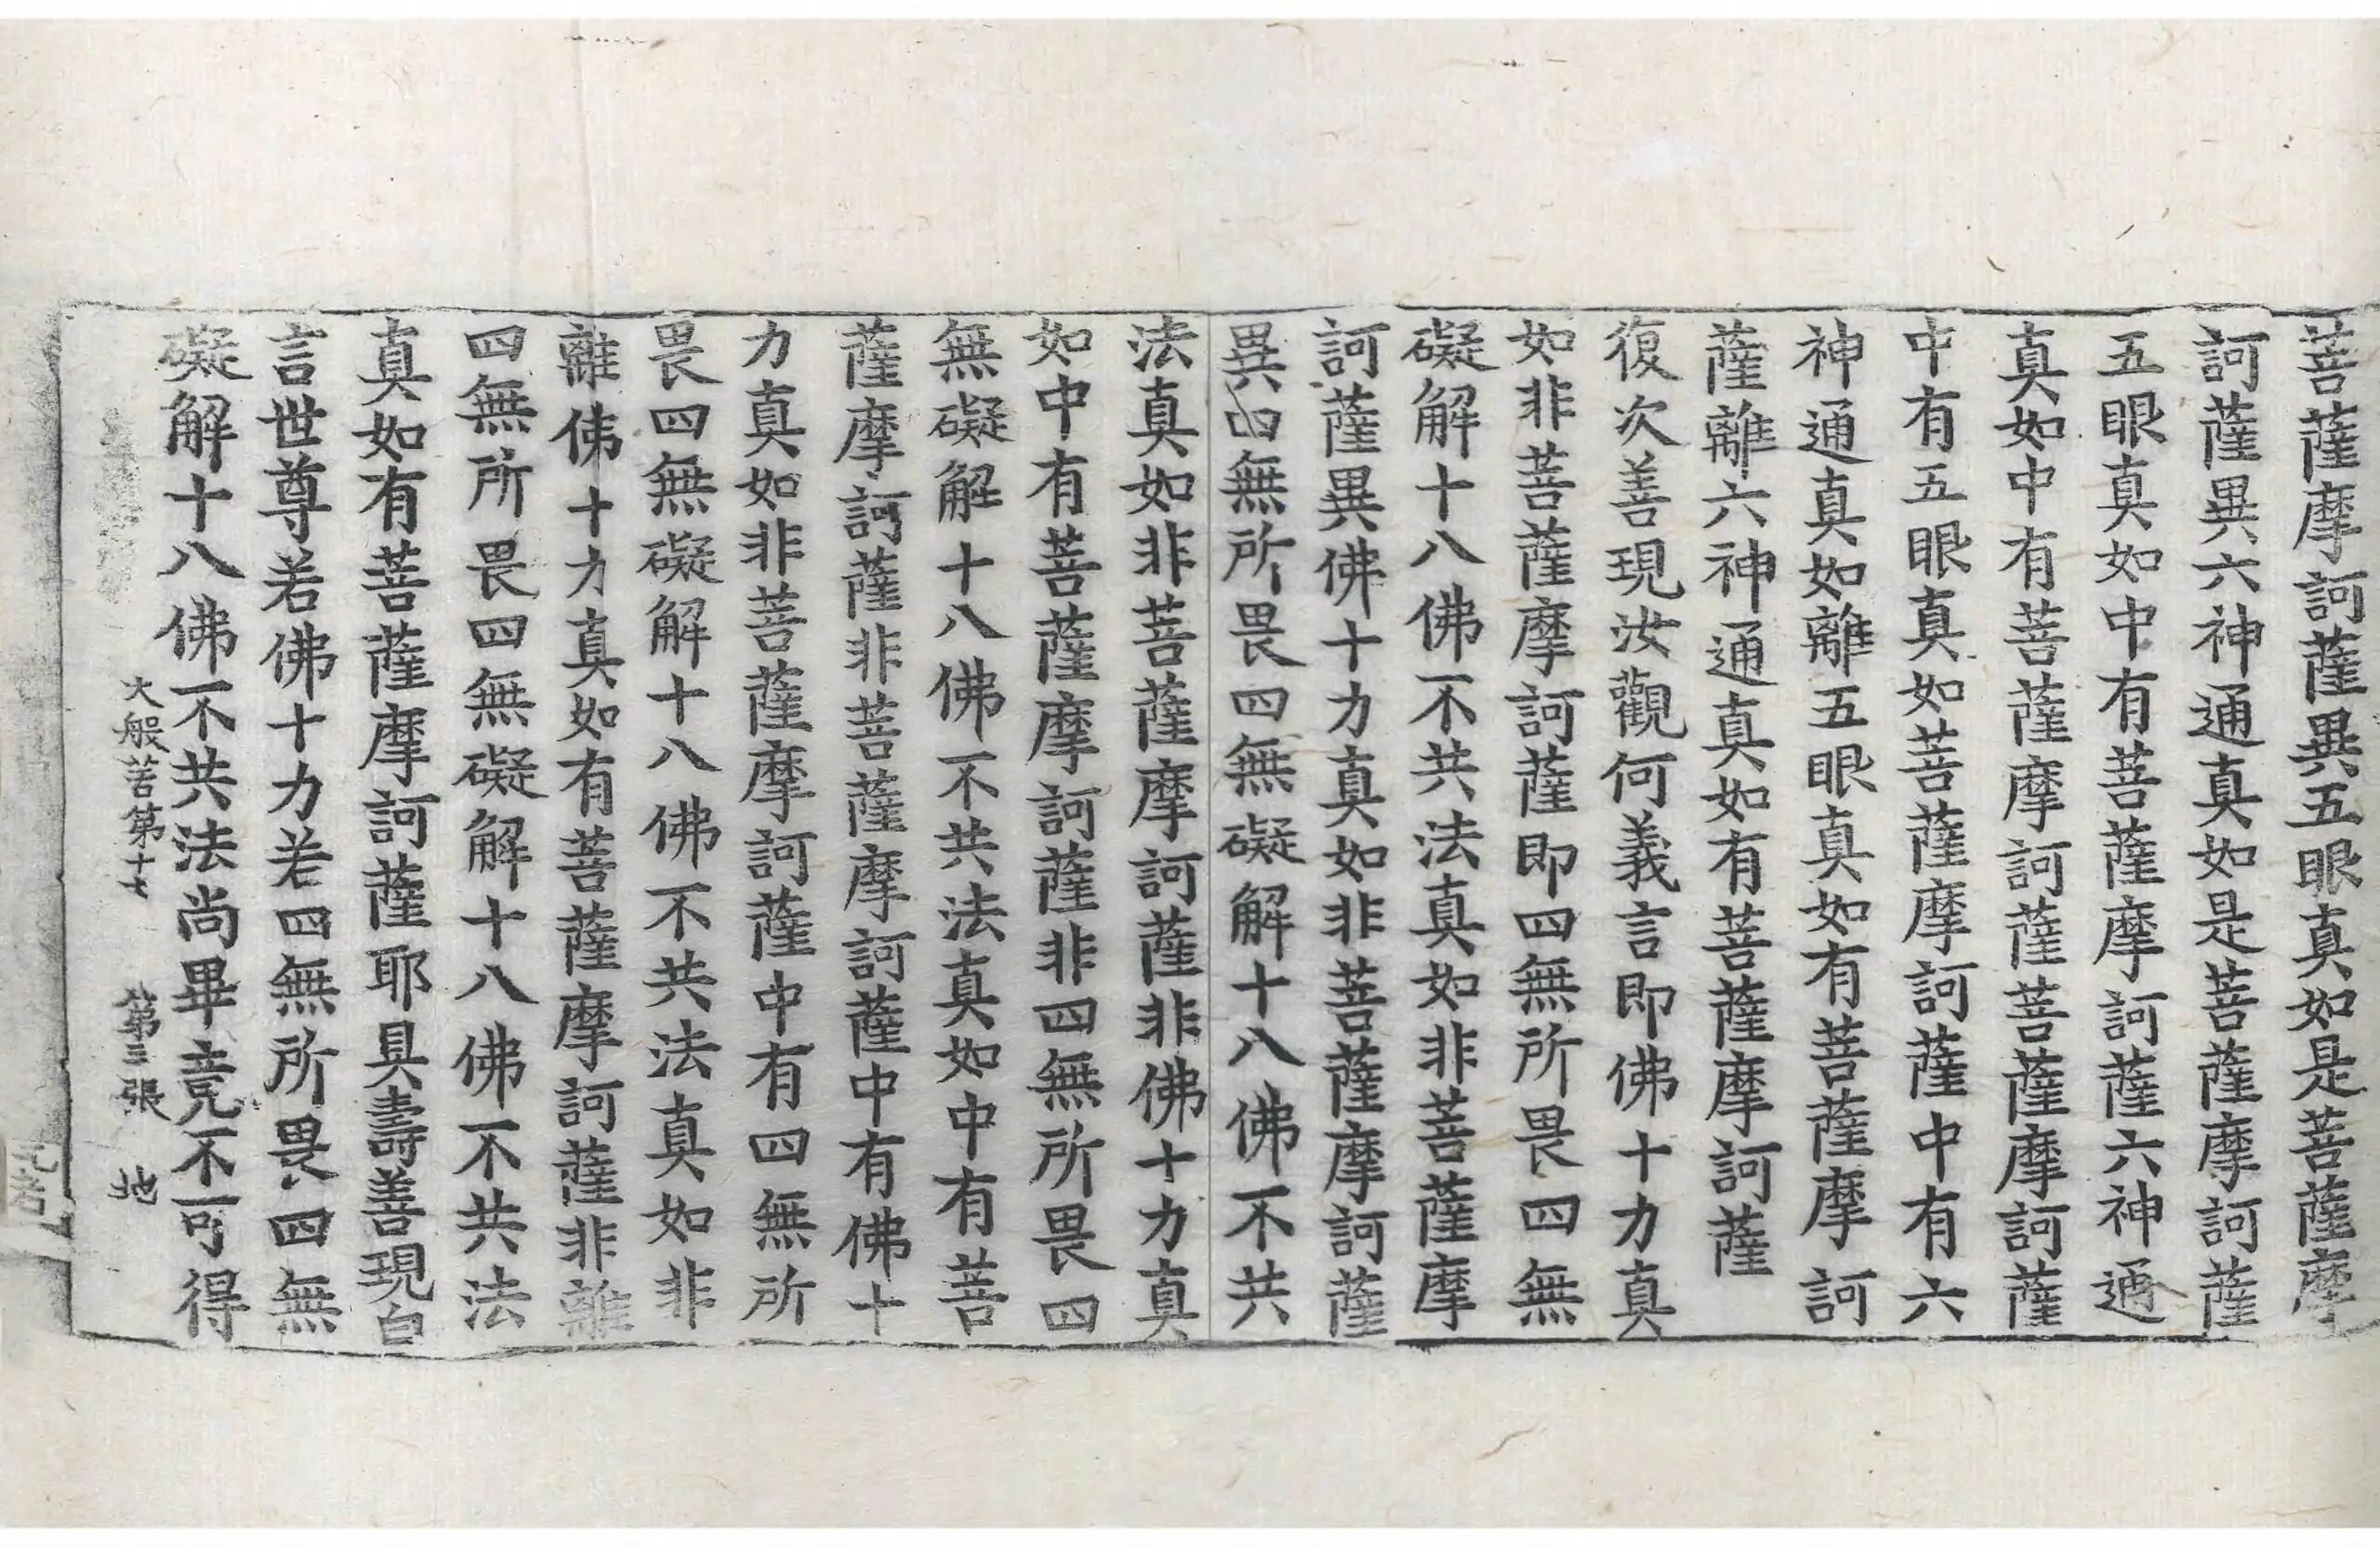 菩薩摩訶薩異五眼真如是菩薩摩
訶薩異六神通真如是菩薩摩訶薩
五眼真如中有菩薩摩訶薩六神通
真如中有菩薩摩訶薩菩薩摩訶薩
中有五眼真如菩薩摩訶薩中有六
神通真如離五眼真如有菩薩摩訶
薩離六神通真如有菩薩摩訶薩
復次善現汝觀何義言即佛十力真
如非菩薩摩訶薩即四無所畏四無
礙解十八佛不共法真如非菩薩摩
訶薩異佛十力真如非菩薩摩訶薩
異四無所畏四無礙解十八佛不共
法真如非菩薩摩訶薩非佛十力真
如中有菩薩摩訶薩非四無所畏四
無礙解十八佛不共法真如中有菩
薩摩訶薩非菩薩摩訶薩中有佛十
力真如非菩薩摩訶薩中有四無所
畏四無礙解十八佛不共法真如非
離佛十力真如有菩薩摩訶薩非離
四無所畏四無礙解十八佛不共法
真如有菩薩摩訶薩耶具壽善現白
言世尊若佛十力若四無所畏四無
礙解十八佛不共法尚畢竟不可得
大般若第十七 第三張 地